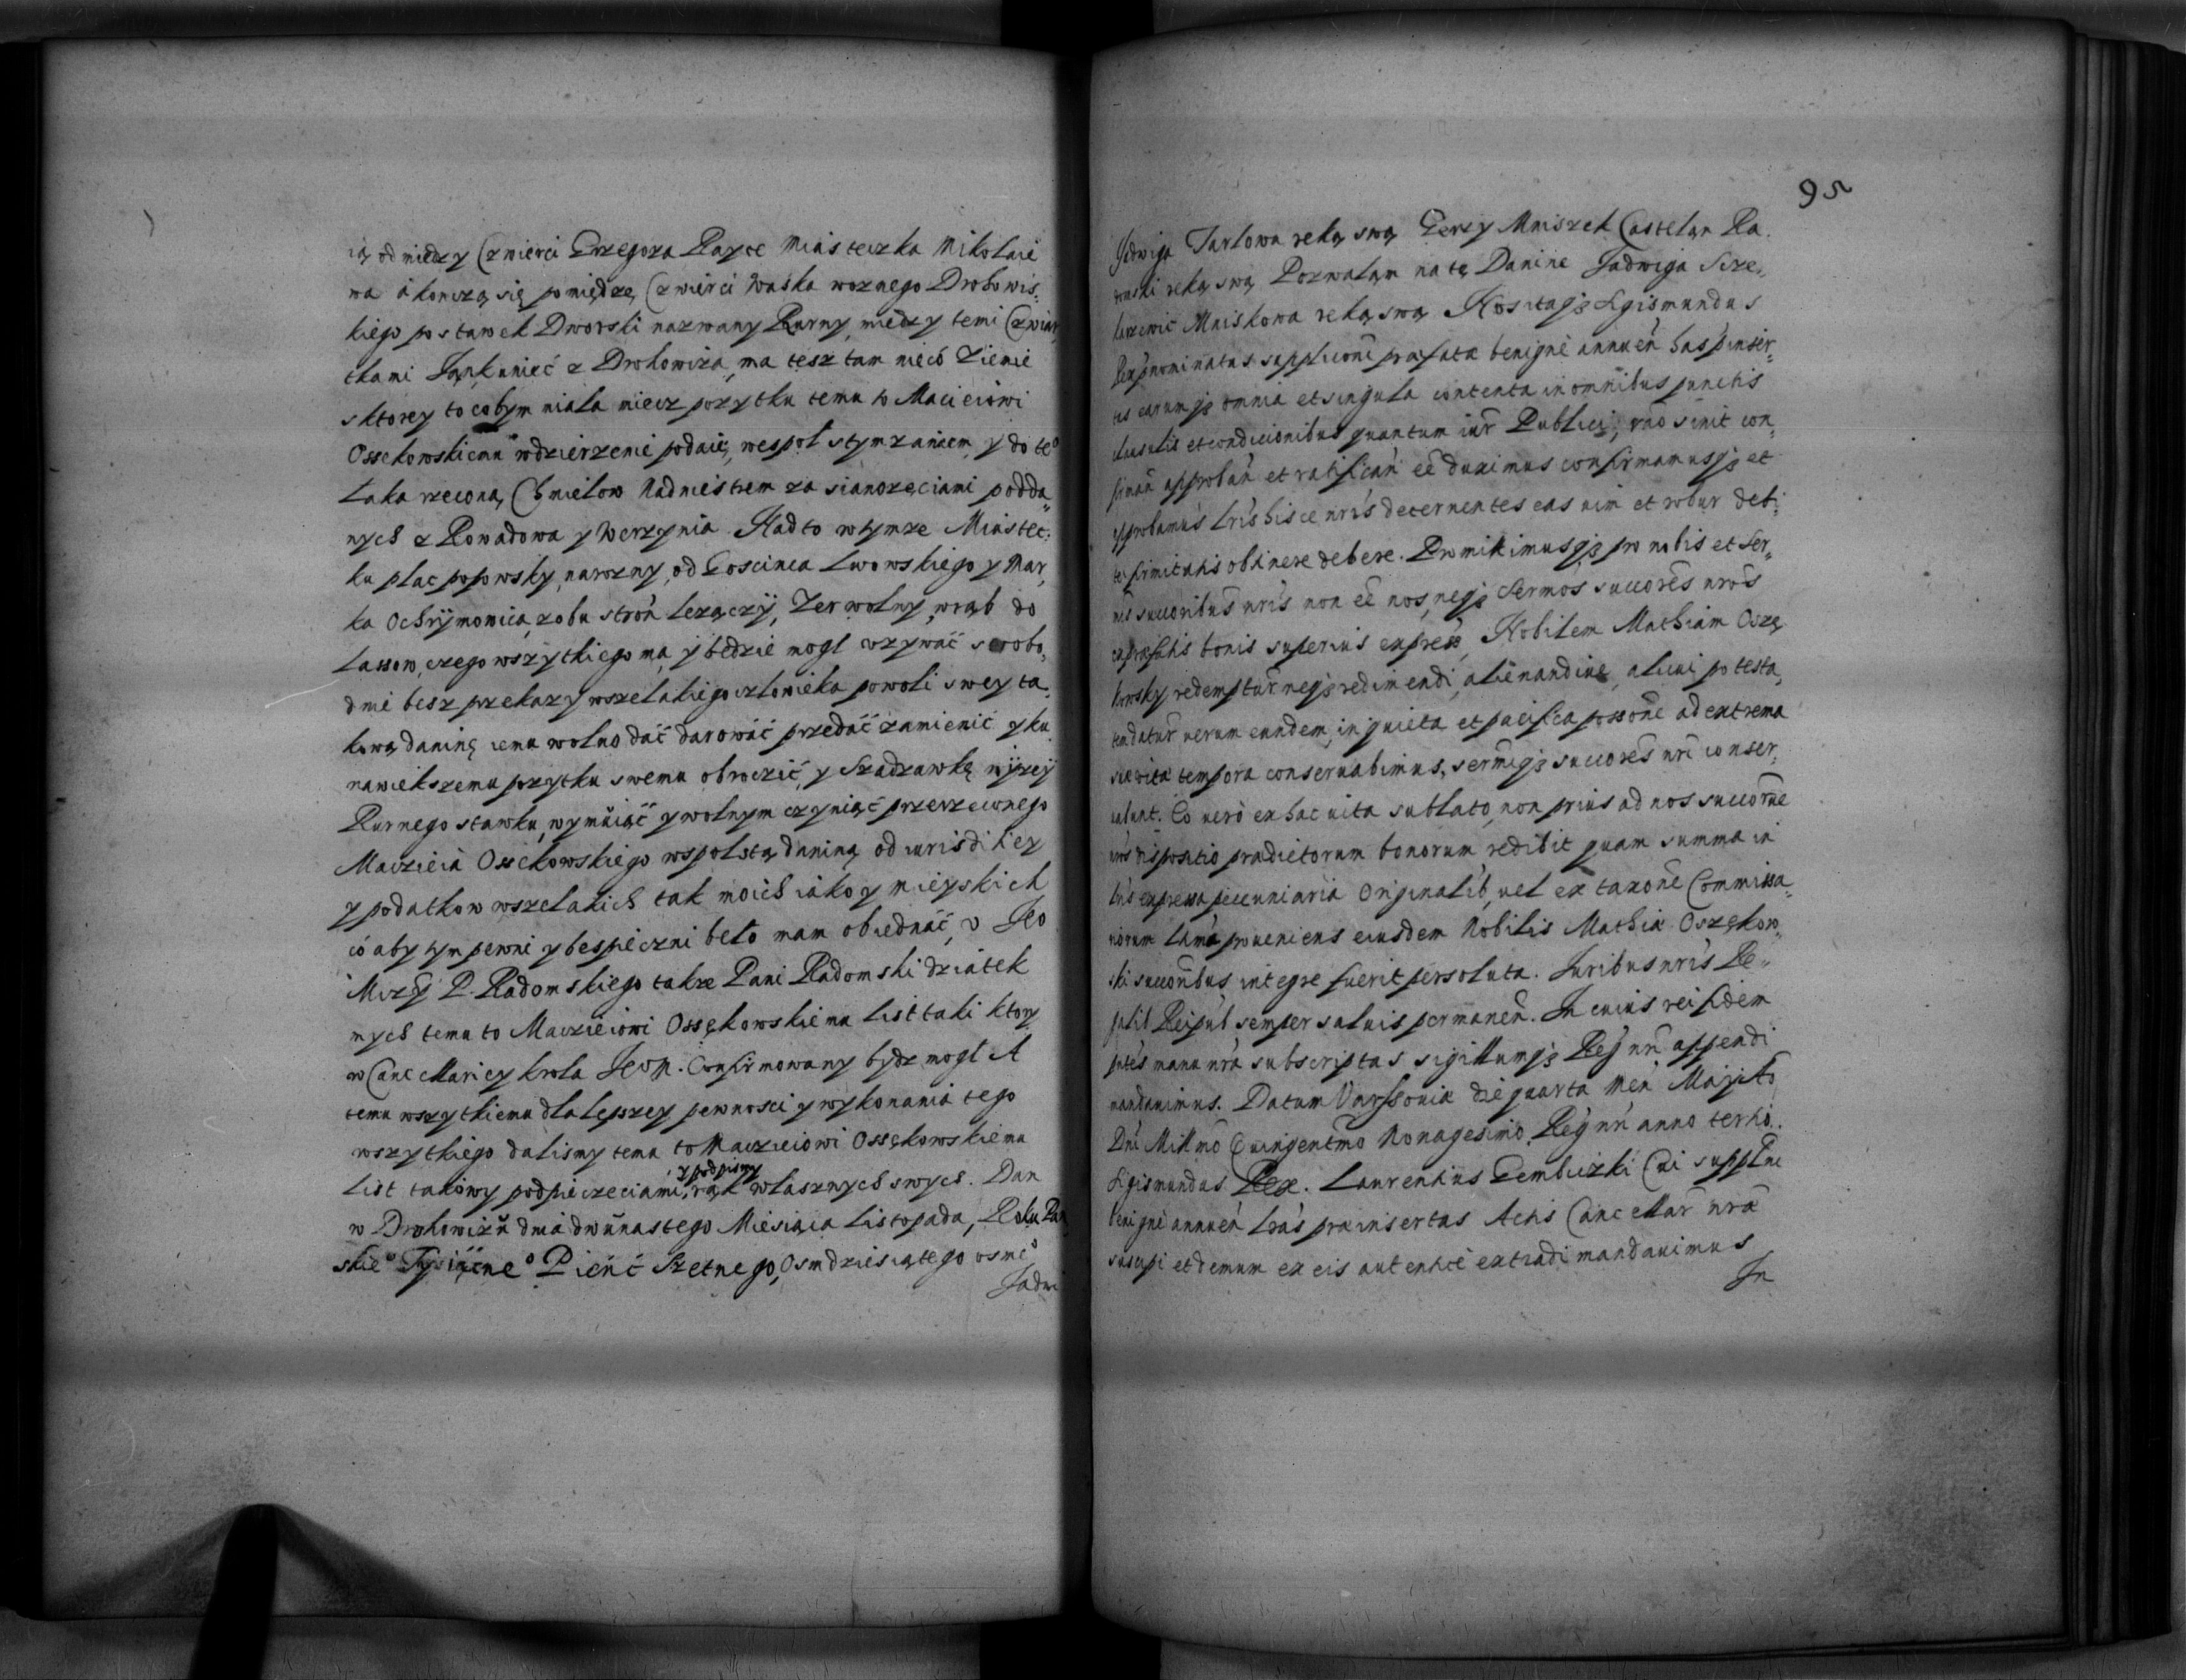 ią od miedzy Czwierci Grzegorza Rayce Miasteczka Mikolaie
wa á koncząsię pomiędzę Czwierci Waska woznego Drohowis,
kiego postawek Dworski nazwany Rurny, miedzy temi Czwiar,
tkami Jankunieć z Drohowiza, ma tesz tam nieco Ziemie
sktorey to cobym miala miecz pozytku temu to Macieiowi
Ossekowskiemu wdzierzenie podaię, wespol stymzaniem y do teº
Laka rzeconą Chmielow Nadniestrem za sianozęciami podda,
nych z Rowadowa y Werzynia. Nadto wtymze Miastec:
ku plac popowsky, narozny, od Goscinca Lwowskiego y Mar,
ka Ochrÿmowica, zobu stron lezączÿ, Zer wolny, wrąb do
Lassow, czegowszytkiego ma y bedzie mogl uzywać swobo,
dnie besz przekazy wszelakiego człowieka powoli swey ta,
kową daninę iemu wolno dać darować przedać zamienić y ku
nawiekszemu pozytku swemu obroczić, y Szadzawkę niżzeÿ
Rurnego stawku, wymuiąć y wolnym czyniąć przerzeconego
Maczieia Ossekowskiego wspolstą daniną od iurisdikiey
y podatkow wszelakich tak moich iako y Mieyskich
co aby tym pewni y bespieczni beło mam obiednać v Jeo
Mczy P. Radomskiego takze Pani Radomski dziatek
mych temu to Maczieiowi Ossękowskiemu list taki ktory
w Cancellariey krola Jeom. Confirmowany bydz mogl A
temu wszytkiemu dla Lepszey pewnosci y wykonania tego
wszytkiego dalismy temu to Maczieiowi Ossękowskiemu
List takowy podpieczeciami, y podpismy rąk własznych swych. Dan
w Drohowizu dnia dwunastego Miesiąca Listopada, Roku Pan
skieº Tysiącneº Pieńć Szetnego, Osmdziesiątego osmeº
Jadwi
95
Jadwiga Tarlowa reką swą Gerzy Mniszek Castelan Ra.
domski reką swą Pozwalam na tę Danine Jadwiga Sze,
luzewic Mniskowa reką swą Nos itaqȝ Sigismundus
Rex pnominatus suppliconi praefatae benigne annuen has pinser,
tas earumqȝ omnia et singula contenta in omnibus punctis
clausulis et condicionibus quantum iur Publici, vao sinit con,
firman approban et ratifican eē duximus confirmamusqȝ et
approbamus Lris hisce nris decernentes eas vim et robur debi:
te firmitatis obtinere debere. Promittimusqȝ pro nobis et Ser,
mis succoribus nris non eē nos, neqȝ Sermos succores nros
ex praefatis bonis superius express, Nobilem Mathiam Oszę
kowsky redemptur neqȝ redimendi, alienandive, alicui potesta,
tem datur verum eundem, in quieta et pacifica possone ad extrema
suae vitae tempora conservabimus, sermiqȝ succores nri conser,
vabunt. Eo vero ex hac vita sublato, non prius ad nos succorue
nros dispositio praedictorum bonorum redibit quam summa in
Lris expressa pecuniaria Originalib, vel ex taxone Commissa,
riorum tama proveniens eiusdem Nobilis Mathiae Oszękow,
ski succoribus integre fuerit persoluta. Juribus nris Re,
galib Reipub semper salvis permanen. In cuius rei fidem
pntes manu nra subscriptas sigillumqȝ Regn nri appendi
mandavimus. Datum Varssoviae die quarta Men Maÿ Aº
Dni Millmo Quingentmo Nonagesimo Regn nri anno tertio.
Sigismundus Rex. Laurentius Gembiczki Cui supplne
benigne annuen Lras praeinsertas Actis Cancellar nrae
suscipi et demum ex eis autentice extradi mandavimus
In